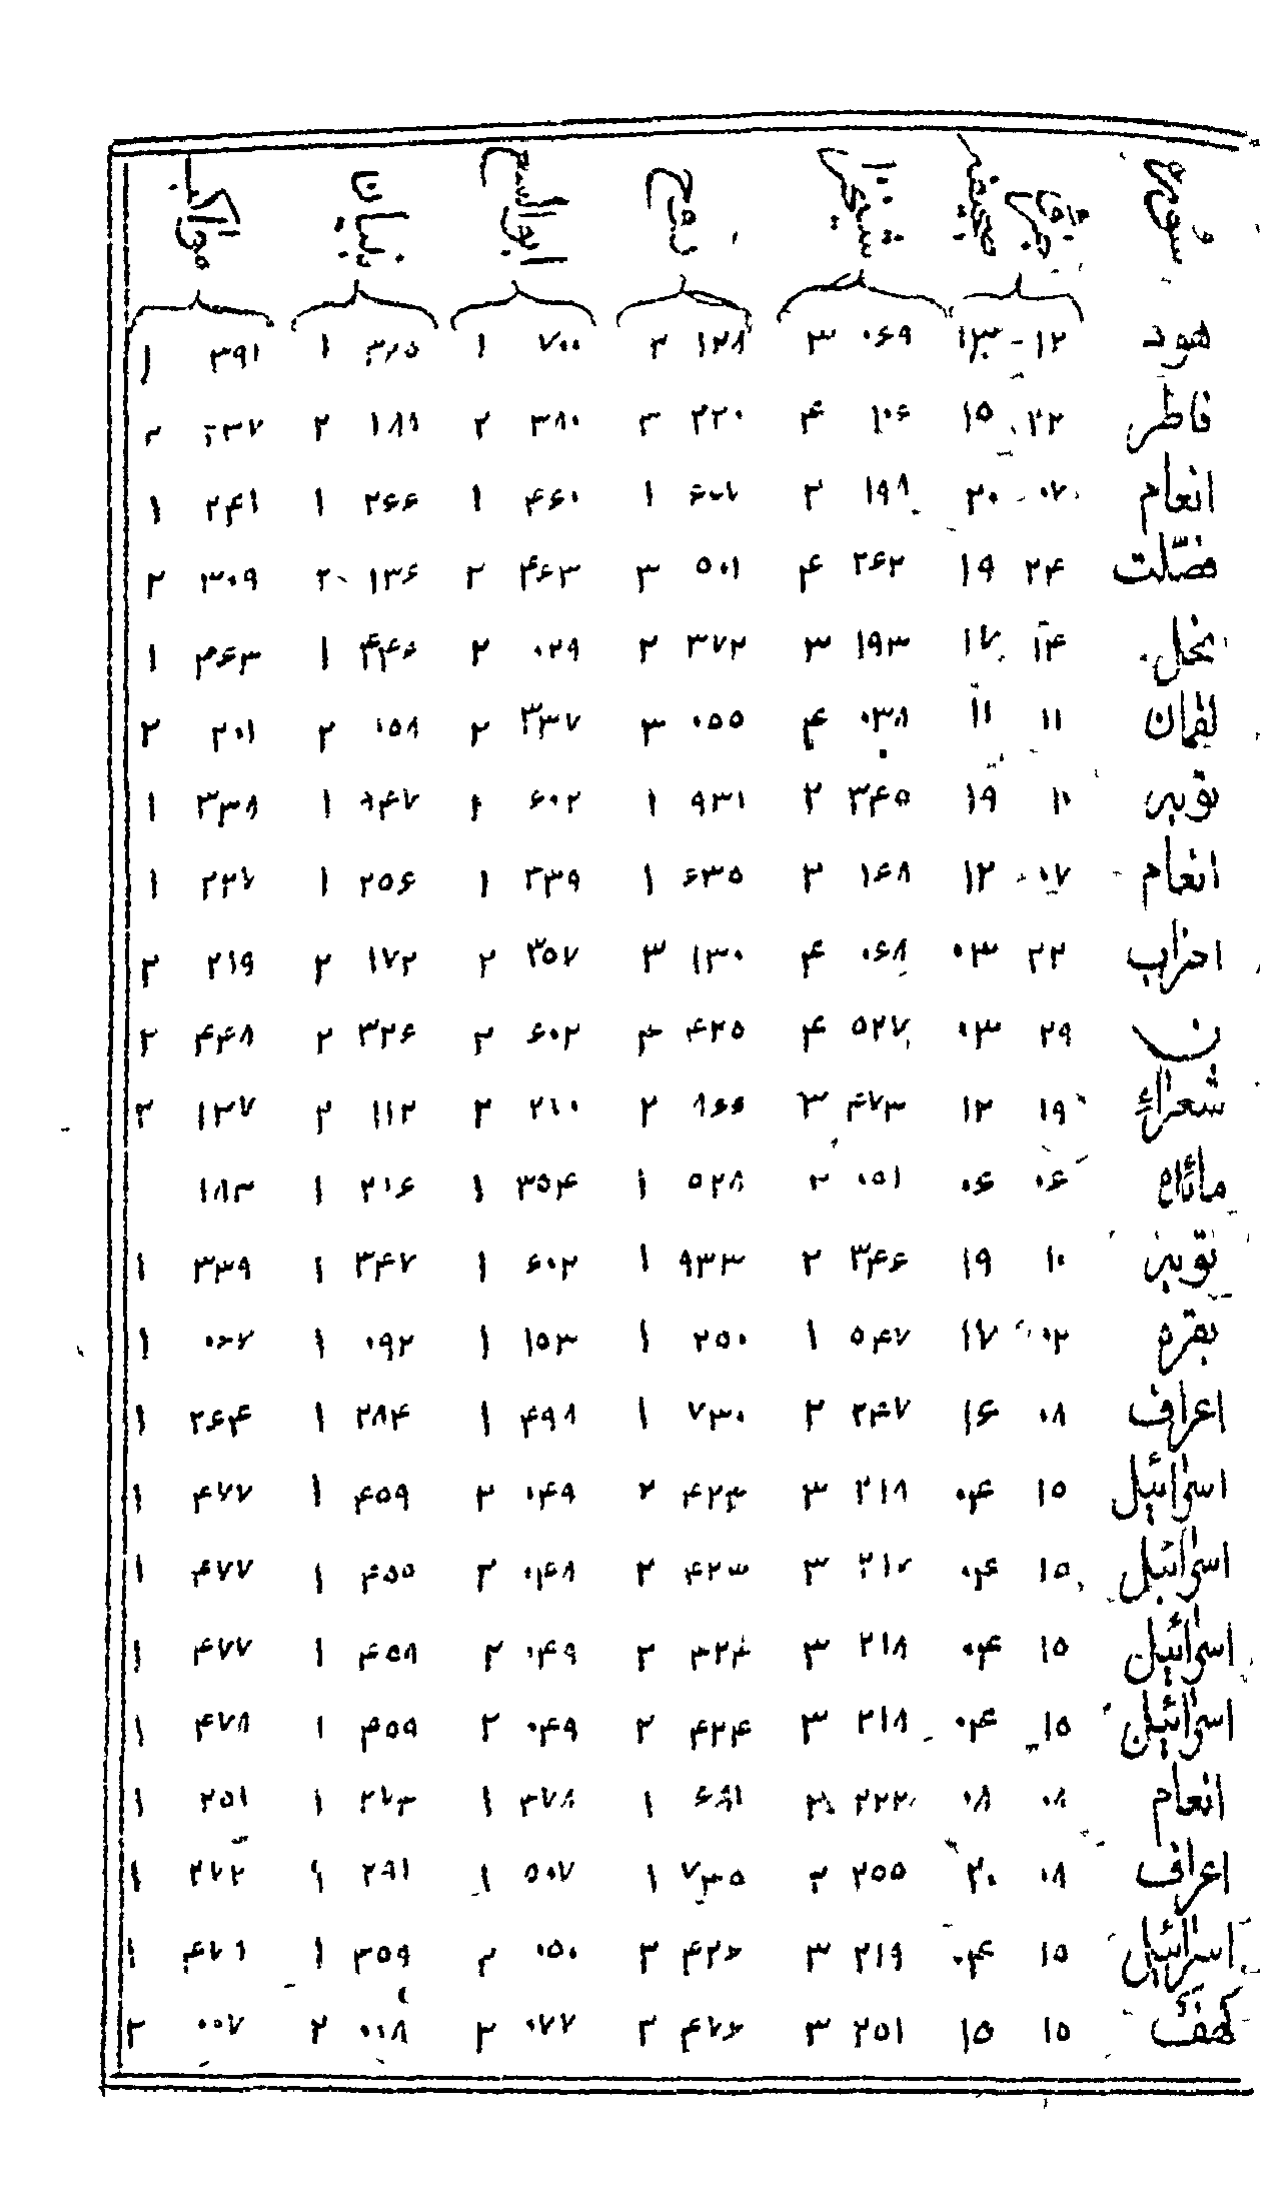 سوره جزء قرآن صحیفه شیخزاده روح ابوالسعود تبیان مواکب
هود ۱۲ ۱۳ ۰۶۹ ۳ ۱۲۸ ۲ ۷۰۰ ۱ ۳۲۵ ۱ ۳۹۱ ۱
فاطر ۲۲ ۱۵ ۱۰۶ ۴ ۲۲۰ ۳ ۳۸۰ ۲ ۱۸۸ ۲ ۲۳۷ ۲
انعام ۰۷ ۲۰ ۱۹۸ ۳ ۱ ۴۶۰ ۱ ۲۶۶ ۱ ۲۴۱ ۱
فصّلت ۲۴ ۱۹ ۲۶۲ ۴ ۵۰۱ ۳ ۴۶۳ ۲ ۱۳۶ ۲ ۳۰۹ ۲
نحل ۱۴ ۱۷ ۱۹۳ ۳ ۳۷۲ ۲ ۰۲۹ ۲ ۴۴۶ ۱ ۴۶۳ ۱
لقمان ۱۱ ۱۱ ۰۳۸ ۴ ۰۵۵ ۳ ۳۳۷ ۲ ۱۵۸ ۲ ۲۰۱ ۲
توبه ۱۰ ۱۹ ۳۴۵ ۲ ۹۳۱ ۱ ۶۰۲ ۱ ۳۴۷ ۱ ۳۳۸ ۱
انعام ۰۷ ۱۲ ۱۶۸ ۳ ۶۳۵ ۱ ۳۳۹ ۱ ۲۵۶ ۱ ۲۲۷ ۱
احزاب ۲۲ ۰۳ ۰۶۸ ۴ ۱۳۰ ۳ ۳۵۷ ۲ ۱۷۲ ۲ ۲۱۹ ۲
ن ۲۹ ۰۳ ۵۲۷ ۴ ۴۲۵ ۴ ۶۰۲ ۲ ۳۲۶ ۲ ۴۴۸ ۲
شعراء ۱۹ ۱۲ ۴۷۳ ۳ ۸۶۶ ۲ ۲۱۰ ۲ ۱۱۲ ۲ ۱۳۷ ۲
مائده ۰۶ ۰۶ ۰۵۱ ۲ ۵۲۸ ۱ ۲۵۴ ۱ ۲۱۶ ۱ ۱۸۳
توبه ۱۰ ۱۹ ۳۴۶ ۲ ۹۳۳ ۱ ۶۰۲ ۱ ۳۴۷ ۱ ۳۳۹ ۱
بقره ۰۲ ۱۷ ۵۴۷ ۱ ۲۵۰ ۱ ۱۵۳ ۱ ۰۹۲ ۱ ۰۶۷ ۱
اعراف ۰۸ ۱۶ ۲۴۷ ۲ ۷۳۰ ۱ ۴۹۸ ۱ ۲۸۴ ۱ ۲۶۴ ۱
اسرائیل ۱۵ ۰۴ ۲۱۸ ۳ ۴۲۳ ۲ ۰۴۹ ۲ ۴۵۹ ۱ ۴۷۷ ۱
اسرائیل ۱۵ ۰۴ ۲۱۷ ۳ ۴۲۳ ۲ ۰۴۸ ۲ ۴۵۵ ۱ ۴۷۷ ۱
اسرائیل ۱۵ ۰۴ ۲۱۸ ۳ ۳۲۴ ۲ ۰۴۹ ۲ ۴۵۸ ۱ ۴۷۷ ۱
اسرائیل ۱۵ ۰۴ ۲۱۸ ۳ ۴۲۴ ۲ ۰۴۹ ۲ ۴۵۹ ۱ ۴۷۸ ۱
انعام ۰۸ ۰۸ ۲۲۲ ۲ ۶۸۱ ۱ ۳۷۸ ۱ ۲۷۳ ۱ ۲۵۱ ۱
اعراف ۰۸ ۲۰ ۲۵۵ ۲ ۷۳۵ ۱ ۵۰۷ ۱ ۲۹۱ ۱ ۲۷۲ ۱
اسرائیل ۱۵ ۰۴ ۲۱۹ ۳ ۴۲۶ ۲ ۰۵۰ ۲ ۳۵۹ ۱ ۴۷۹ ۱
کهف ۱۵ ۱۵ ۲۵۱ ۳ ۴۷۶ ۲ ۰۷۷ ۲ ۰۱۸ ۲ ۰۰۷ ۲